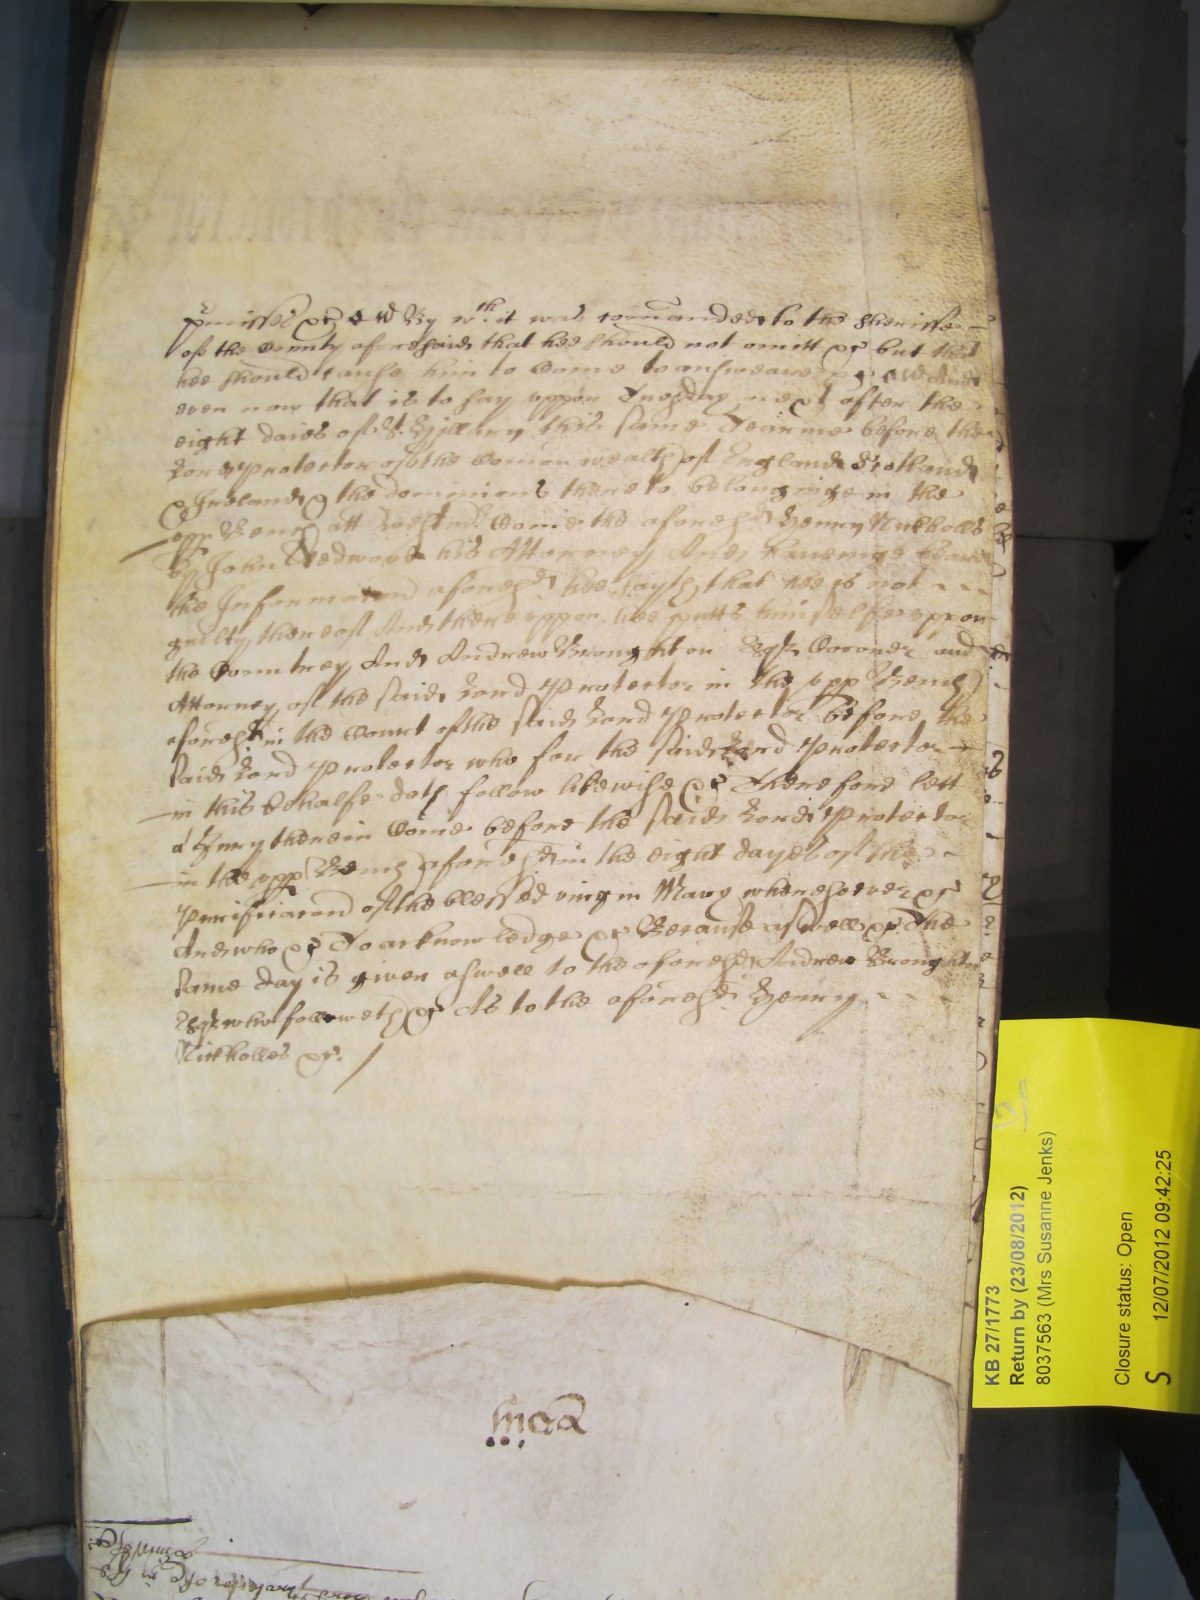 pmisses &c And By wch it was comanded to the Sheriffe
of the County aforesaid that hee should not omitt &c but that
hee should cause him to Come to answeare &c And
even now that is to say uppon Tuesday next after the
eight daies of St. Hillary this same Tearme before the
Lord Protector of the Comon wealth of England Scotland
& Ireland & the dominions thereto belonginge in the
upp Bench att Westmr. Come the aforesd Henry Nickholls
by John Redwood his Attorney And haveinge heard
the Informacond aforesd hee sayth that hee is not
guilty thereof And thereuppon hee putts himselfe uppon
the Countrey And Andrew Broughton Esqr. Coroner and
Attorney of the said Lord Protector in the upp Bench
aforesd in the Court of the said Lord Protector before the
said Lord Protector who for the said Lord Protector
in this behalfe doth follow likewise &c Therefore lett
a Jury therein Come before the said Lord Protector
in the upp Bench aforesd in the eight dayes of the
Purificacond of the blessed virgin Mary wheresoever &c
And who &c To acknowledge &c Because aswell &c The
same day is given aswell to the aforesd Andrew Broughton
Esqr. who followeth &c As to the aforesd. Henry
Nickholles &c.
KB 27/1773
Return by (23/08/2012)
8037563 (Mrs Susanne Jenks)
Closure status: Open
S 12/07/2012 09:42:25